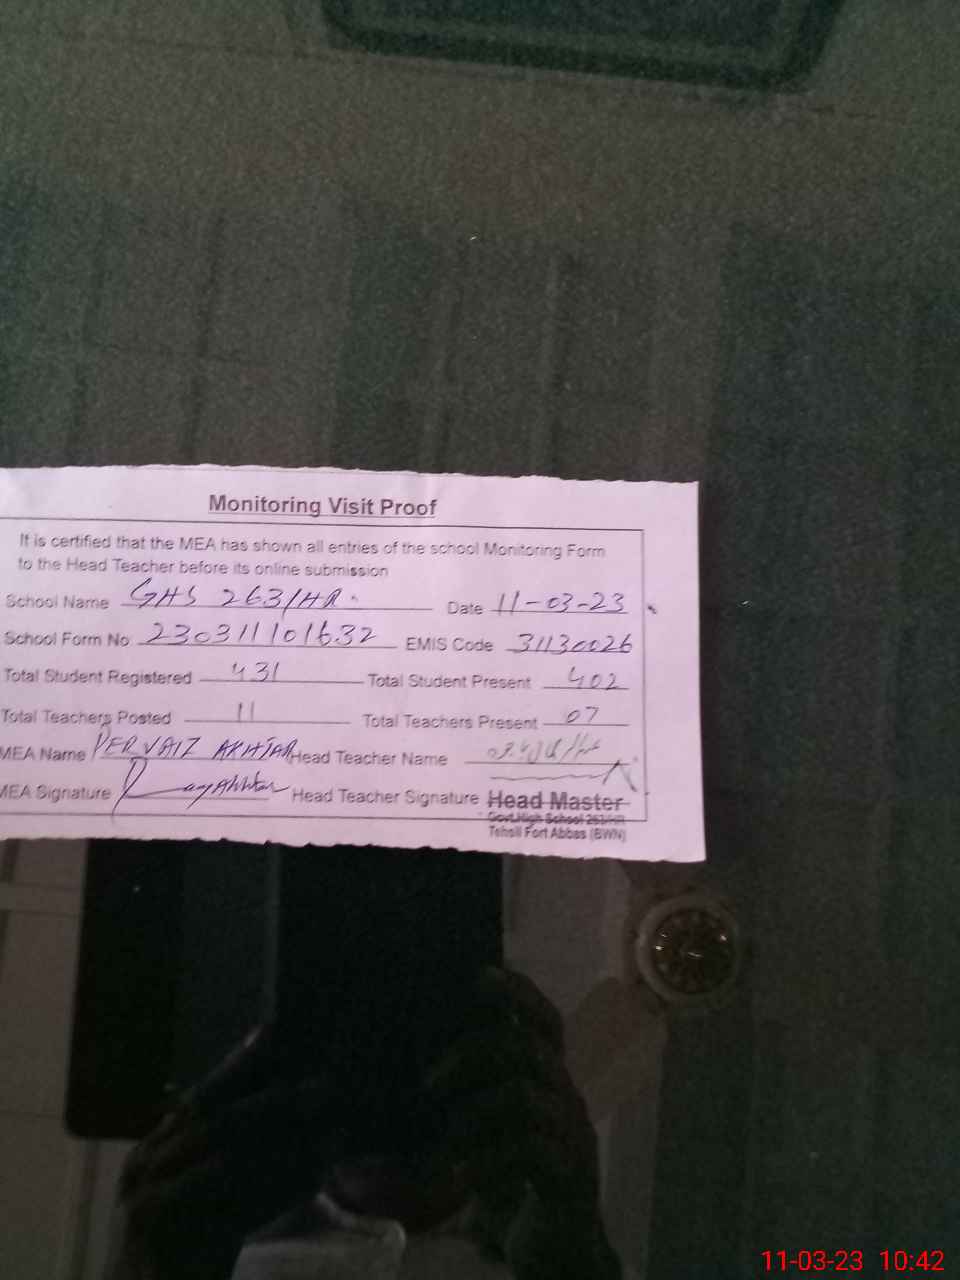 Monitoring Visit Proof
It is certified that the MEA has shown all entries of the school Monitoring Form
to the Head Teacher before its online submission
School Name GHS 263/HR. Date 11-03-23
School Form No 230311101632 EMIS Code 31130026
Total Student Registered 431 Total Student Present 402
Total Teachers Posted 11 Total Teachers Present 07
MEA Name PERVAIZ AKHTAR Head Teacher Name
MEA Signature Head Teacher Signature Head Master
Govt.High School 263/HR
Tehsil Fort Abbas (BWN)
11-03-23 10:42